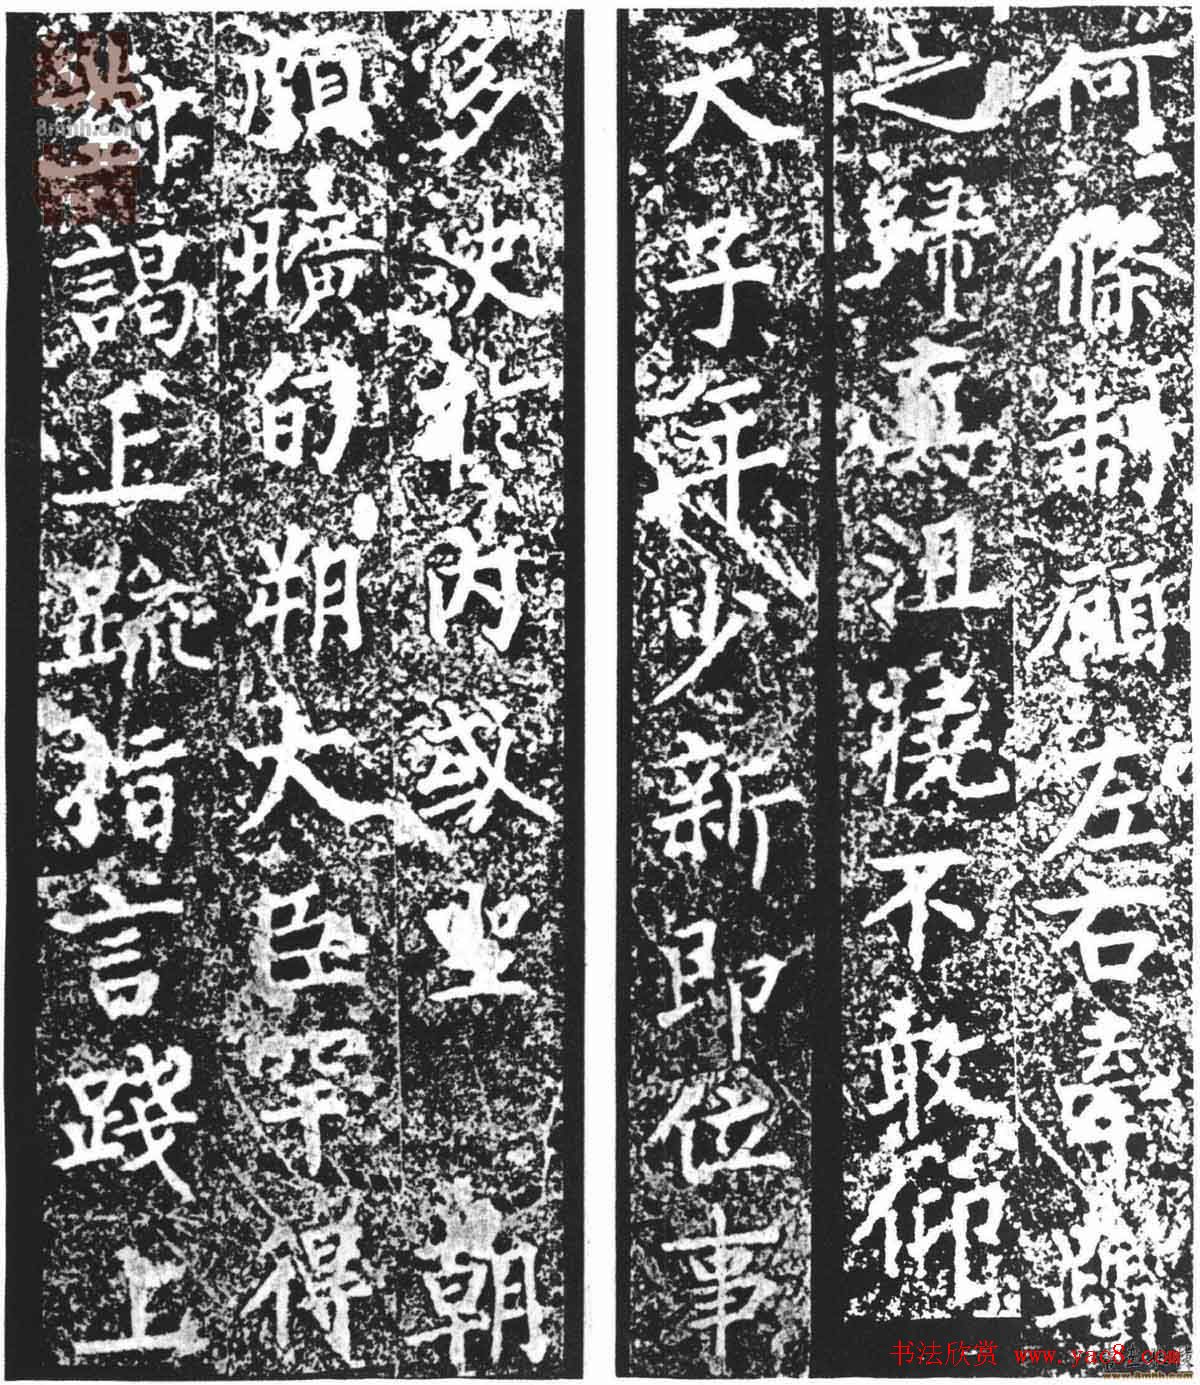 何條制顧左右
之歸真沮橈不敢仰
天子年少新即位事
多决於內或坐朝
頗曠旬朔大臣罕得
對謁上疏指言踐上
书法欣赏 www.yac8.com